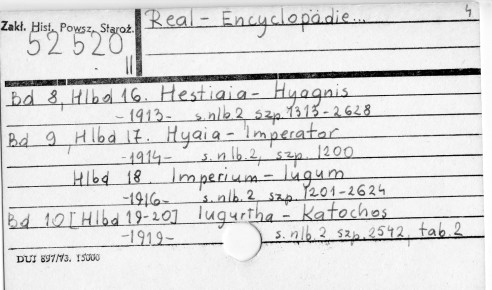 Real-Encyclopädie... 4
Zakł. Hist. Powsz. Staroż.
52520
II
Bd 8, Hlbd 16. Hestiaia - Hyagnis
-1913- s.nlb.2 szp. 1313-2628
Bd 9, Hlbd 17. Hyaia - Imperator
-1914- s.nlb.2, szp. 1200
Hlbd 18. Imperium - Iugum
-1916- s.nlb.2 szp. 1201-2624
Bd 10 [Hlbd 19-20] Iugurtha - Katochos
-1919- s.nlb.2 szp. 2542, tab.2
DUJ 897/73. 15000